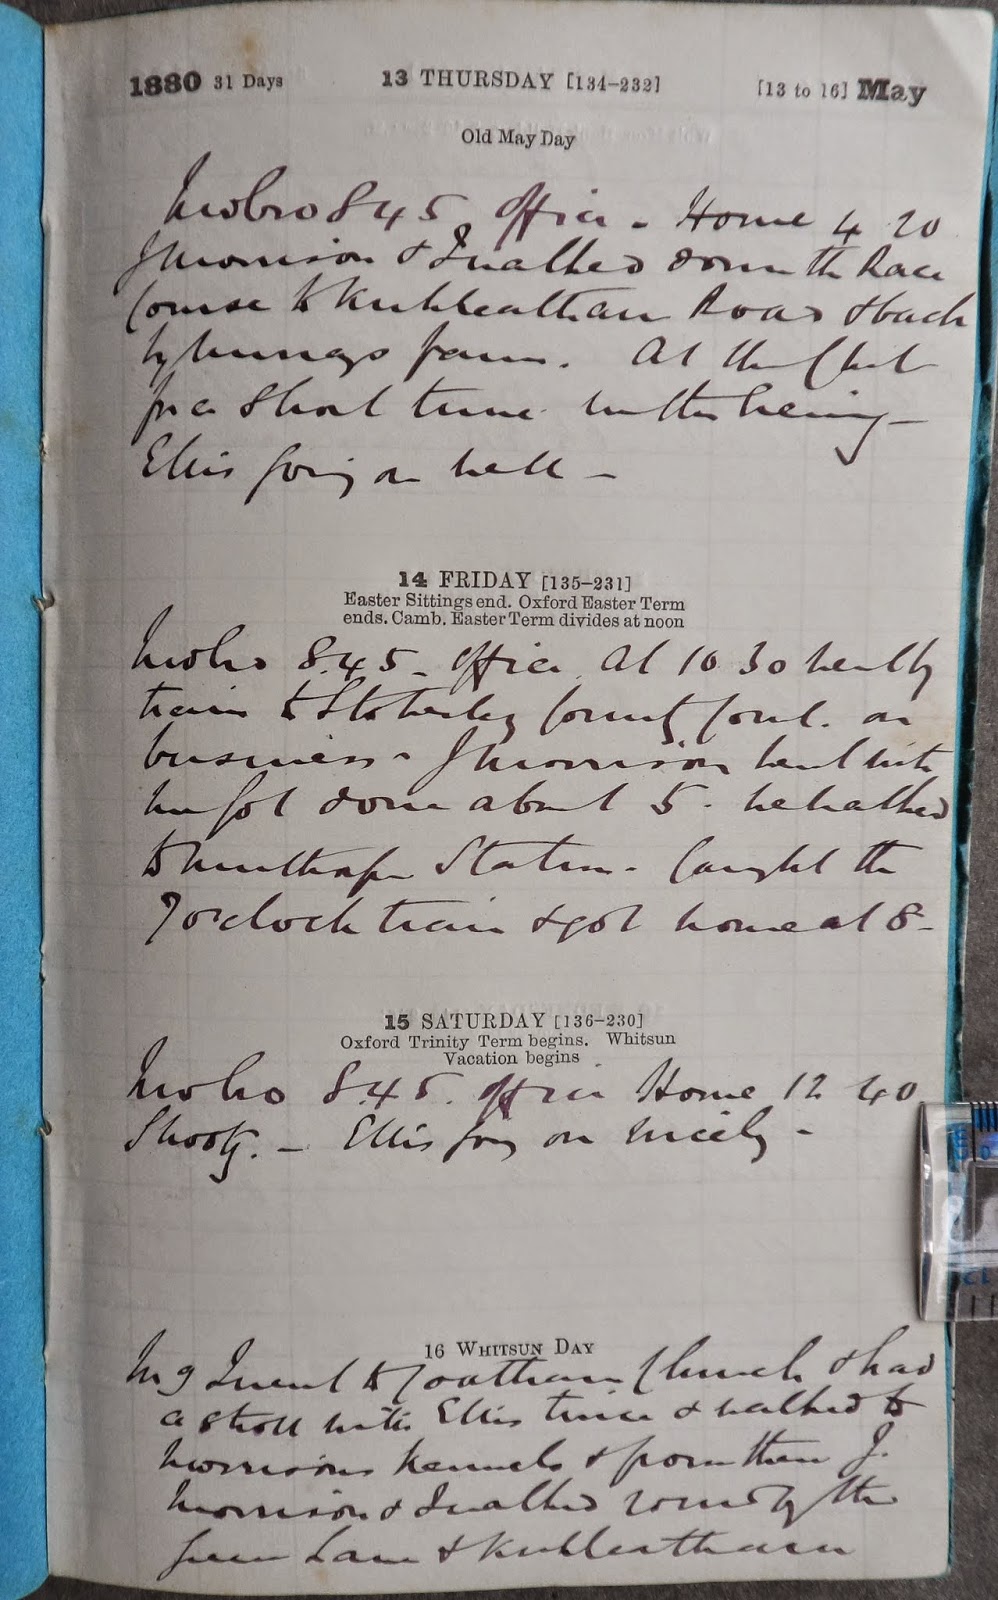 1880 31 Days 13 THURSDAY [134-232] [13 to 16] May
Old May Day
Mobro 8 45 office - Home 4 20
J Morrison & I walked down the Race
Course to Kirkleatham Road & back
by farm. At the Club
for a short time in the evening -
Ellis going on well -
14 FRIDAY [135-231]
Easter Sittings end. Oxford Easter Term
ends. Camb. Easter Term divides at noon
Mobro 8.45 - office At 10 30 went by
train to Stokesley County Court. on
business - J Morrison went with
me got done about 5 - we walked
to Nunthorpe Station - Caught the
7 o'clock train & got home at 8 -
15 SATURDAY [136-230]
Oxford Trinity Term begins. Whitsun
Vacation begins
Mobro 8.45. office Home 12 40
Showery. - Ellis going on nicely -
16 WHITSUN DAY
Mg I went to Coatham Church & had
a stroll with Ellis twice & walked to
Morrisons Kennels & from then J.
Morrison & I walked round by the
Green Lane & Kirkleatham